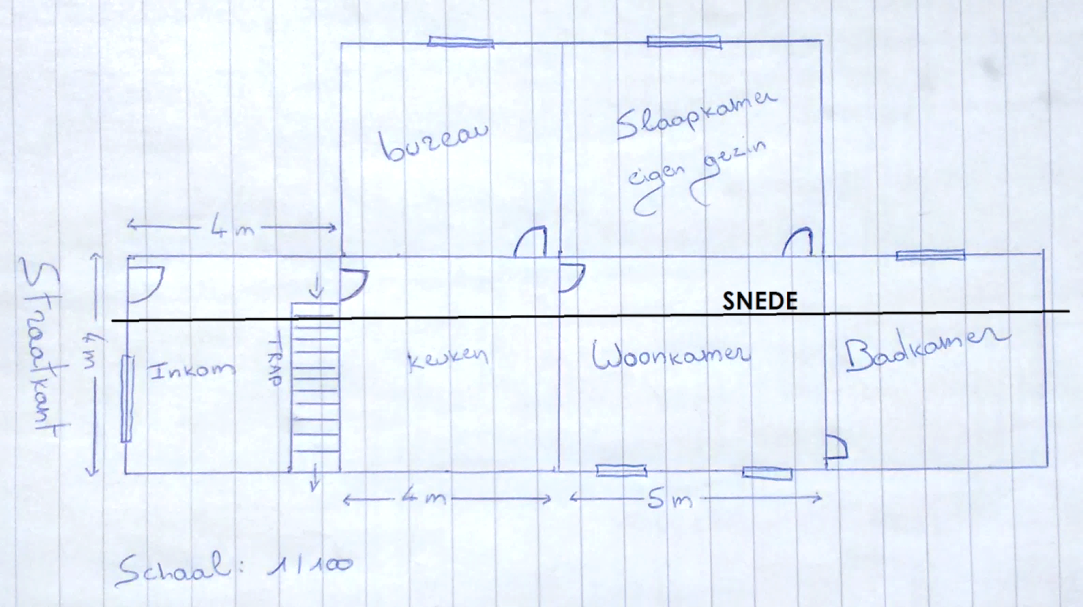 bureau
Slaapkamer
eigen gezin
4m
Straatkant
4m
SNEDE
Inkom
TRAP
keuken
Woonkamer
Badkamer
4m
5m
Schaal: 1/100